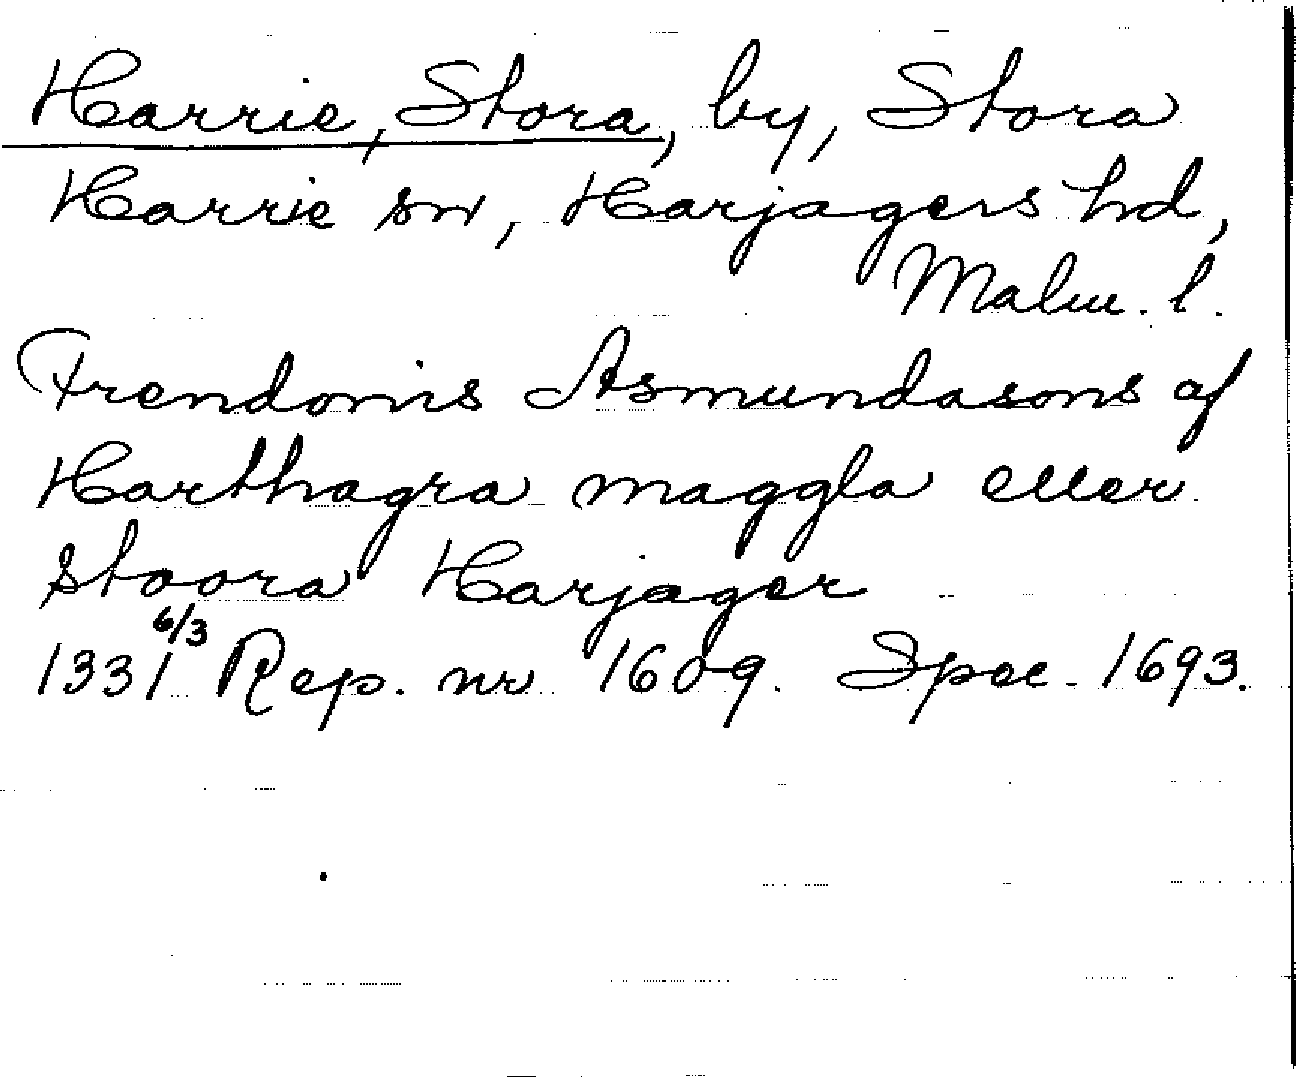 Harrie, Stora, by, Stora
Harrie sn, Harjagers hd,
Malm. l.
Frendonis Asmundasons af
Harthagra maggla eller
stoora Harjager
1331 6/3 Rep. nr 1609. Spec. 1693.